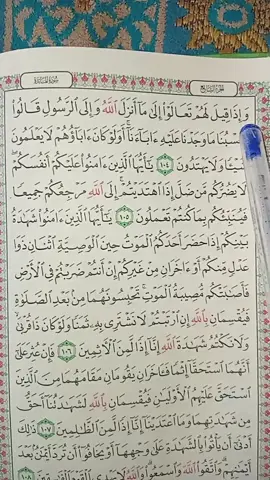 وَإِذَا قِيلَ لَهُمْ تَعَالَوْا إِلَىٰ مَا أَنزَلَ اللَّهُ وَإِلَى الرَّسُولِ قَالُوا
حَسْبُنَا مَا وَجَدْنَا عَلَيْهِ ءَابَاءَنَا أَوَلَوْ كَانَ ءَابَاؤُهُمْ لَا يَعْلَمُونَ
شَيْئًا وَلَا يَهْتَدُونَ ١٠٤ يَا أَيُّهَا الَّذِينَ ءَامَنُوا عَلَيْكُمْ أَنفُسَكُمْ
لَا يَضُرُّكُم مَّن ضَلَّ إِذَا اهْتَدَيْتُمْ إِلَى اللَّهِ مَرْجِعُكُمْ جَمِيعًا
فَيُنَبِّئُكُم بِمَا كُنتُمْ تَعْمَلُونَ ١٠٥ يَا أَيُّهَا الَّذِينَ ءَامَنُوا شَهَادَةُ
بَيْنِكُمْ إِذَا حَضَرَ أَحَدَكُمُ الْمَوْتُ حِينَ الْوَصِيَّةِ اثْنَانِ ذَوَا
عَدْلٍ مِّنكُمْ أَوْ ءَاخَرَانِ مِنْ غَيْرِكُمْ إِنْ أَنتُمْ ضَرَبْتُمْ فِي الْأَرْضِ
فَأَصَابَتْكُم مُّصِيبَةُ الْمَوْتِ تَحْبِسُونَهُمَا مِن بَعْدِ الصَّلَوٰةِ
فَيُقْسِمَانِ بِاللَّهِ إِنِ ارْتَبْتُمْ لَا نَشْتَرِي بِهِ ثَمَنًا وَلَوْ كَانَ ذَا قُرْبَىٰ
وَلَا نَكْتُمُ شَهَادَةَ اللَّهِ إِنَّا إِذًا لَّمِنَ الْآثِمِينَ ١٠٦ فَإِنْ عُثِرَ عَلَىٰ
أَنَّهُمَا اسْتَحَقَّا إِثْمًا فَآخَرَانِ يَقُومَانِ مَقَامَهُمَا مِنَ الَّذِينَ
اسْتَحَقَّ عَلَيْهِمُ الْأَوْلَيَانِ فَيُقْسِمَانِ بِاللَّهِ لَشَهَادَتُنَا أَحَقُّ
مِن شَهَادَتِهِمَا وَمَا اعْتَدَيْنَا إِنَّا إِذًا لَّمِنَ الظَّالِمِينَ ١٠٧ ذَٰلِكَ
أَدْنَىٰ أَن يَأْتُوا بِالشَّهَادَةِ عَلَىٰ وَجْهِهَا أَوْ يَخَافُوا أَن تُرَدَّ أَيْمَانٌ بَعْدَ
أَيْمَانِهِمْ وَاتَّقُوا اللَّهَ وَاسْمَعُوا وَاللَّهُ لَا يَهْدِي الْقَوْمَ الْفَاسِقِينَ ١٠٨